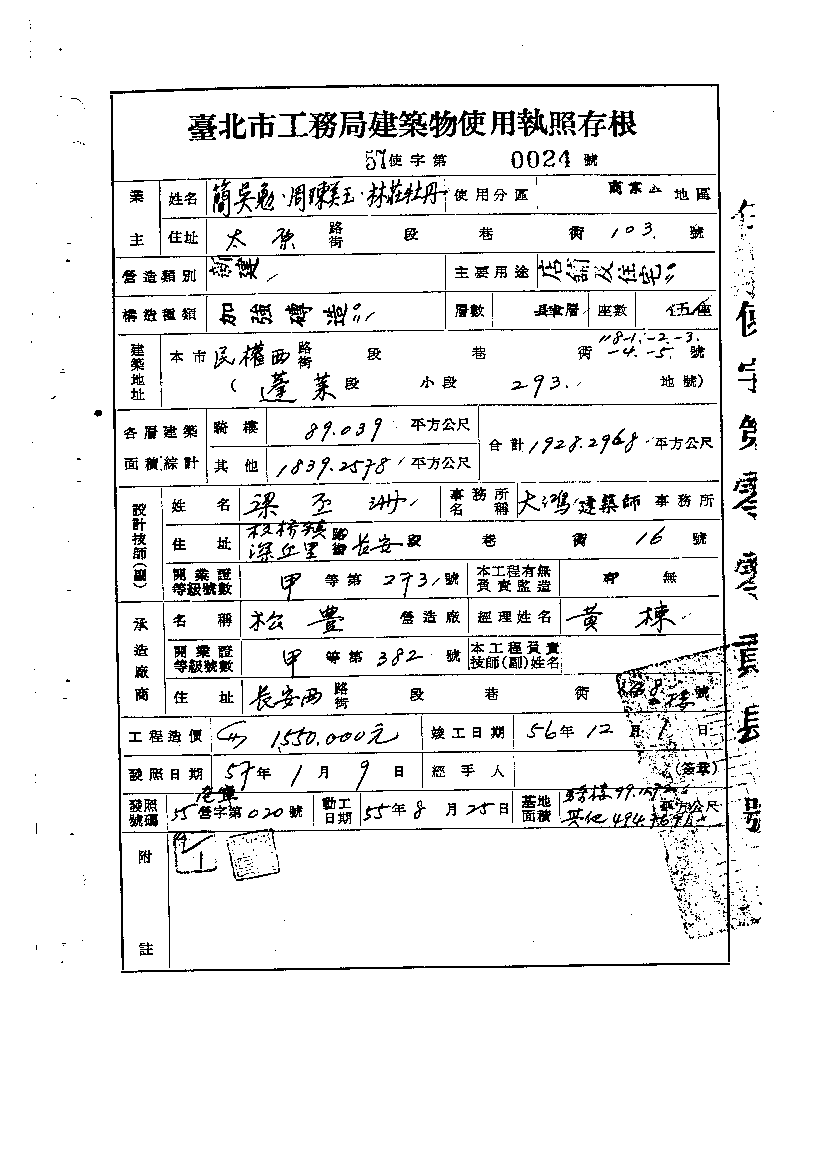 臺北市工務局建築物使用執照存根
57使字第 0024 號
業主 姓名 簡吳 ·周陳美玉·林莊牡丹 使用分區 商業 地區
住址 太原 路街 段 巷 街 103 號
營造類別 新建 主要用途 店舖及住宅
構造種類 加強磚造 層數 層 座數 伍座
建築地址 本市民權西路街 段 巷 街 118-1.-2.-3.-4.-5. 號
(蓬萊段 小段 293. 地號)
各層建築面積綜計 騎樓 89.039 平方公尺 合計 1928.2968 平方公尺
其他 1839.2578 平方公尺
設計技師(副) 姓名 梁丕洲 事務所名稱 大鴻建築師 事務所
住址 板橋鎮深丘里路街長安段 巷 街 16 號
開業證等級號數 甲等第 2731 號 本工程有無負責監造 有 無
承造廠商 名稱 松豊 營造廠 經理姓名 黃棟
開業證等級號數 甲等第 382 號 本工程負責技師(副)姓名
住址 長安西路街 段 巷 街 號
工程造價 1,550,000元 竣工日期 56年12月1日
發照日期 57年1月9日 經手人 (簽章)
發照號碼 55營字第020號 動工日期 55年8月25日 基地面積 騎樓 其他 平方公尺
附註
使字第零零貳肆號